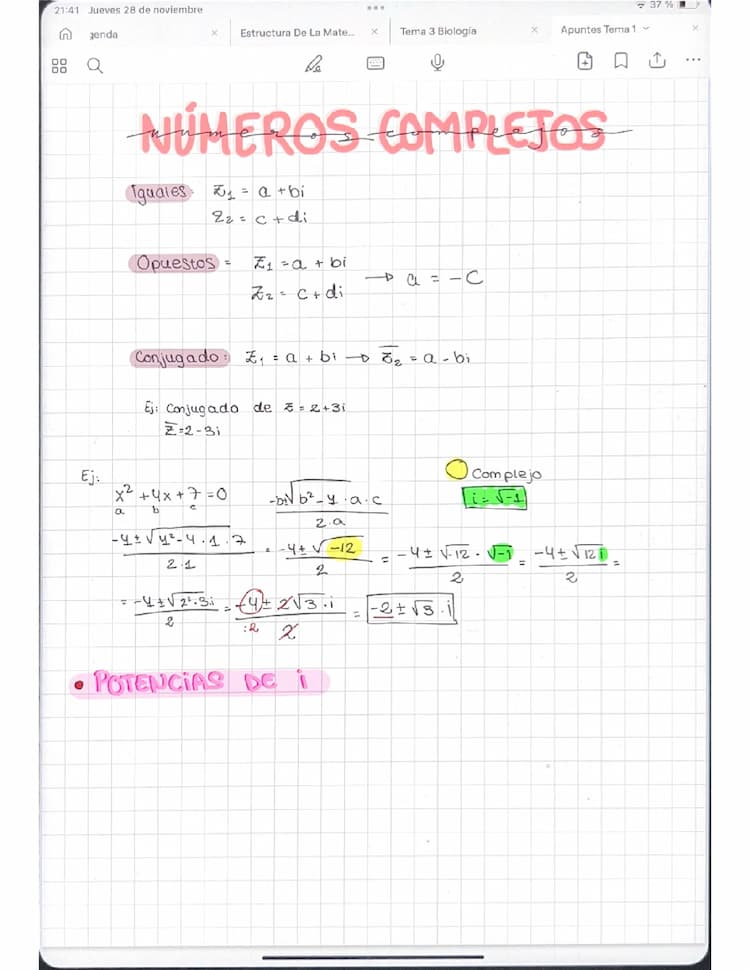 21:41 Jueves 28 de noviembre
37 %
genda
Estructura De La Mate...
Tema 3 Biología
Apuntes Tema 1
NÚMEROS COMPLEJOS
números complejos
Iguales: z₁ = a + bi
z₂ = c + di
Opuestos = z₁ = a + bi
z₂ = c + di → a = -c
Conjugado: z₁ = a + bi → z̅₂ = a - bi
Ej: Conjugado de z = 2+3i
z̅ = 2-3i
Ej:
Complejo
x² + 4x + 7 = 0
a b c
-b±√b² - 4 · a · c / 2.a
i = √-1
-4 ± √4² - 4 · 1 · 7 / 2·1 = -4 ± √-12 / 2 = -4 ± √12 · √-1 / 2 = -4 ± √12 i / 2 =
= -4 ± √2²·3i / 2 = -4 ± 2√3 · i / 2 = -2 ± √3 · i
:2
• POTENCIAS DE i